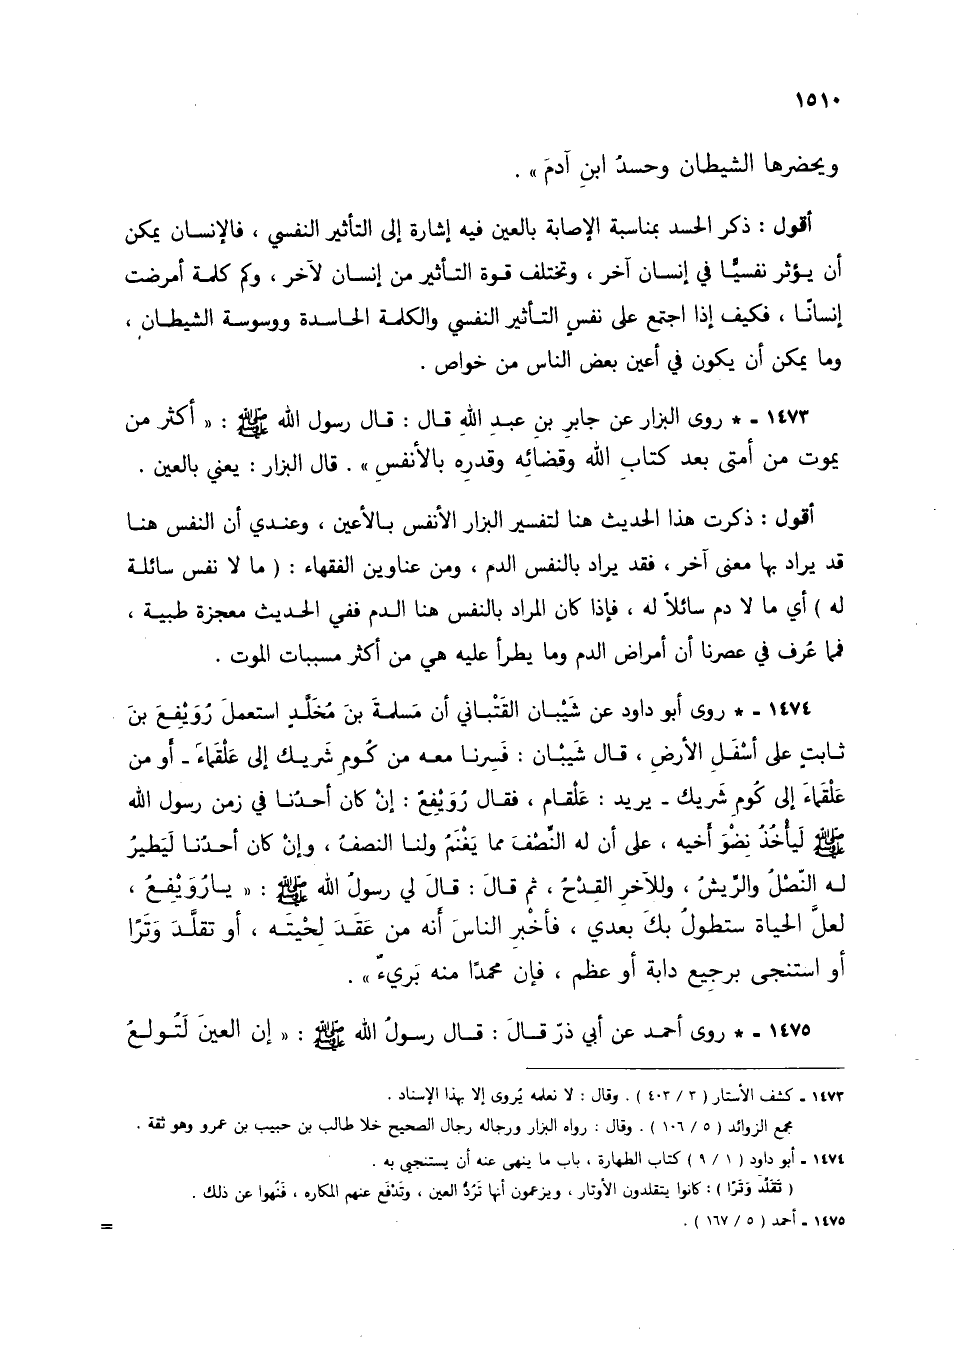 ١٥١٠
ويحضرها الشيطان وحسدُ ابنِ آدمَ » .
أقول : ذكر الحسد بمناسبة الإصابة بالعين فيه إشارة إلى التأثير النفسي ، فالإنسان يمكن
أن يؤثر نفسيًّا في إنسان آخر ، وتختلف قوة التأثير من إنسان لآخر ، وكم كلمة أمرضت
إنسانًا ، فكيف إذا اجتمع على نفسٍ التأثير النفسي والكلمة الحاسدة ووسوسة الشيطان ،
وما يمكن أن يكون في أعين بعض الناس من خواص .
١٤٧٣ - * روى البزار عن جابرِ بنِ عبدِ اللهِ قال : قال رسول الله ﷺ : « أكثر من
يموت من أمتى بعد كتابِ الله وقضائِه وقدرِه بالأنفسِ » . قال البزار : يعني بالعين .
أقول : ذكرت هذا الحديث هنا لتفسير البزار الأنفس بالأعين ، وعندي أن النفس هنا
قد يراد بها معنى آخر ، فقد يراد بالنفس الدم ، ومن عناوين الفقهاء : ( ما لا نفس سائلة
له ) أي ما لا دم سائلاً له ، فإذا كان المراد بالنفس هنا الدم ففي الحديث معجزة طبية ،
فما عُرف في عصرنا أن أمراض الدم وما يطرأ عليه هي من أكثر مسببات الموت .
١٤٧٤ - * روى أبو داود عن شَيْبان القَتْباني أن مَسلمةَ بنَ مُخَلَّدٍ استعملَ رُوَيْفِعَ بنَ
ثابتٍ على أسْفَلِ الأرضِ ، قال شَيبْان : فَسِرنا معه من كُومِ شَريك إلى عَلْقماءَ - أو من
عَلْقماءَ إلى كُومِ شَريك - يريد : عَلْقام ، فقال رُوَيْفِعٌ : إنْ كان أحدُنا في زمن رسول الله
ﷺ لَيأْخُذُ نِضْوَ أخيه ، على أن له النِّصْفَ مما يَغْنَمُ ولنا النصفُ ، وإنْ كان أحدُنا لَيَطيرُ
له النَّصْلُ والرِّيشُ ، وللآخرِ القِدْحُ ، ثم قالَ : قالَ لي رسولُ الله ﷺ : « يارُوَيْفعُ ،
لعلَّ الحياة ستطولُ بكَ بعدي ، فأخْبرِ الناسَ أنه من عَقَدَ لِحْيتَه ، أو تقلَّدَ وَتَرًا
أو استنجى برجيعِ دابة أو عظم ، فإن محمدًا منه بَريءٌ » .
١٤٧٥ - * روى أحمد عن أبي ذرّ قالَ : قال رسولُ الله ﷺ : « إن العينَ لَتُولعُ
١٤٧٣ - كشف الأستار ( ٣ / ٤٠٣ ) . وقال : لا نعلمه يُروى إلا بهذا الإسناد .
مجمع الزوائد ( ٥ / ١٠٦ ) . وقال : رواه البزار ورجاله رجال الصحيح خلا طالب بن حبيب بن عمرو وهو ثقة .
١٤٧٤ - أبو داود ( ١ / ٩ ) كتاب الطهارة ، باب ما ينهى عنه أن يستنجي به .
( تَقَلَّدَ وَتَرًا ) : كانوا يتقلدون الأوتار ، ويزعمون أنها تَرُدُّ العين ، وتَدْفَع عنهم المكاره ، فَنُهوا عن ذلك .
١٤٧٥ - أحمد ( ٥ / ١٦٧ ) .
=